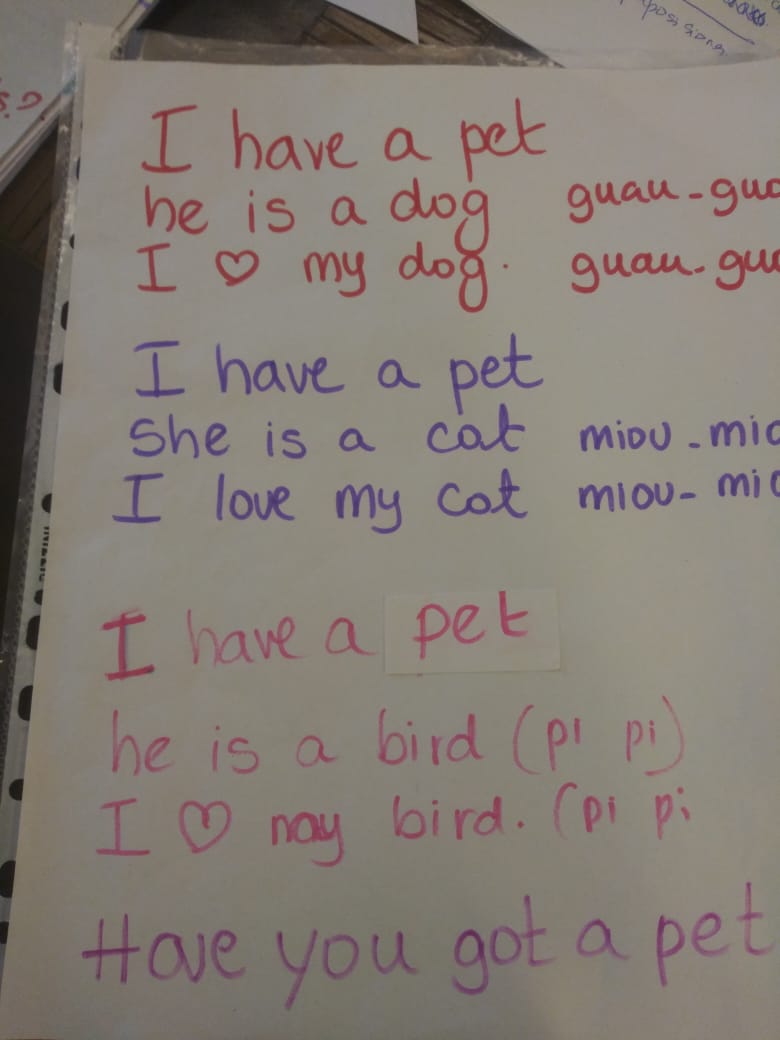 posisions
S.D.
I have a pet
he is a dog guau-gua
I ♡ my dog. guau-gua
I have a pet
She is a cat miou-mio
I love my cat miou-mio
I have a pet
he is a bird (pi pi)
I ♡ my bird. (pi pi
Have you got a pet